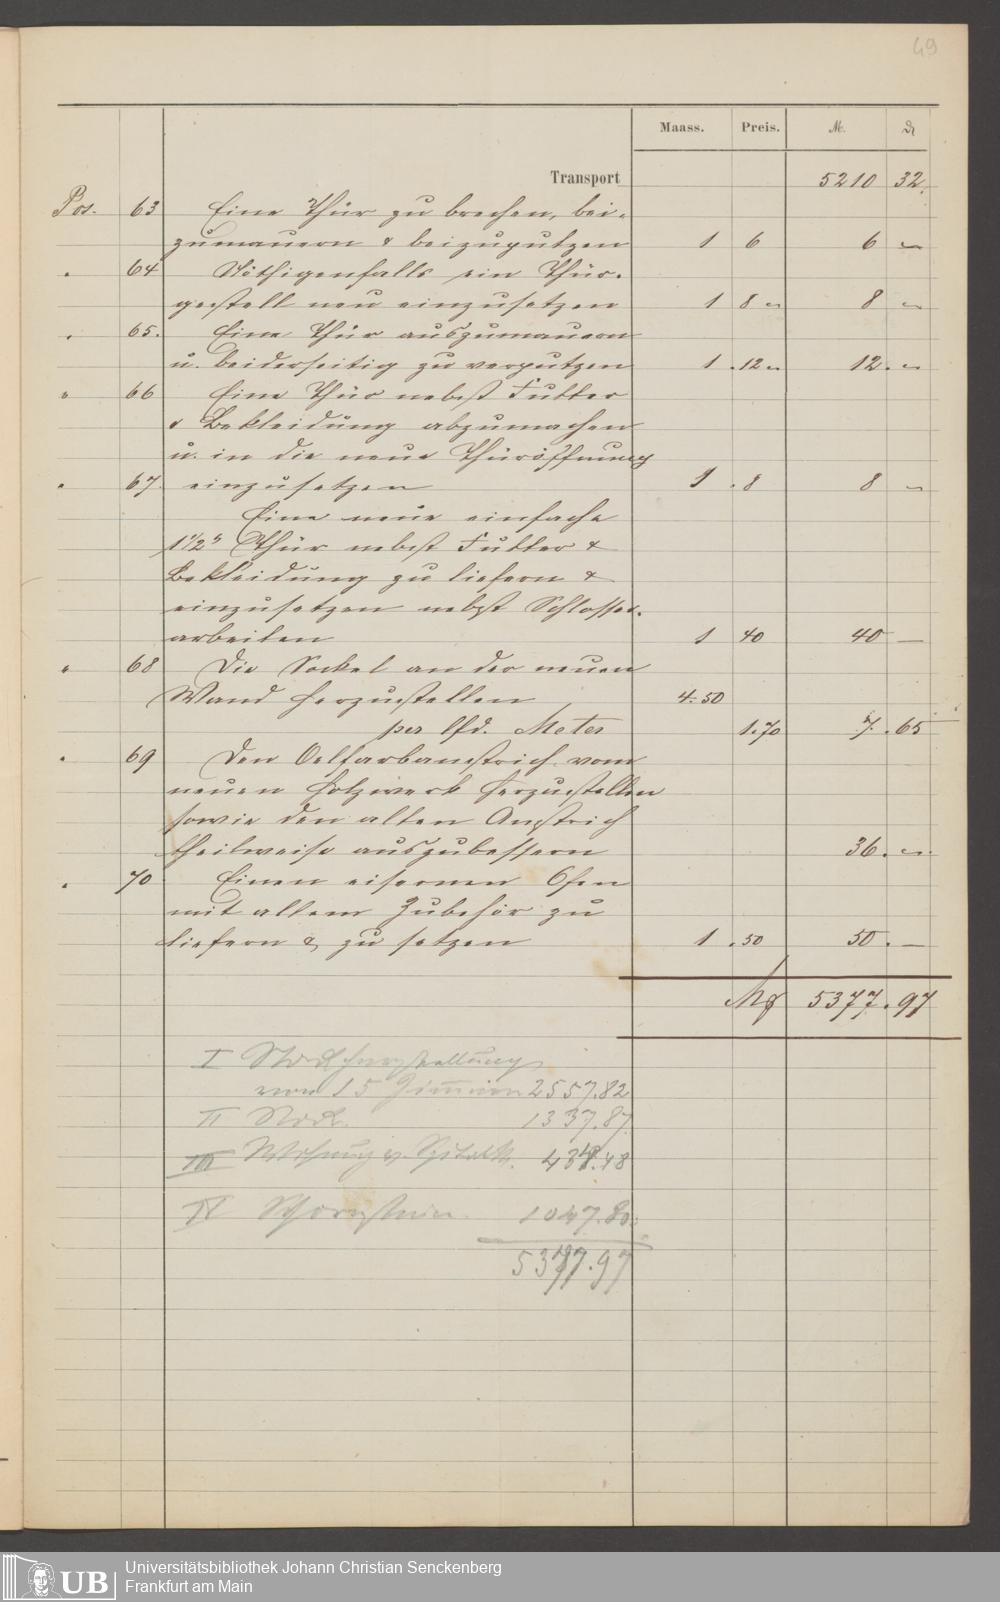 49
Maass. Preis. M. ₰
Transport 5210 32.
Pos. 63 Eine Thür zu brechen, bei-
zumauern & beizuputzen 1 6 6 „
" 64 Nöthigenfalls ein Thür-
gestell neu einzusetzen 1 8 „ 8 „
" 65. Eine Thür auszumauern
u. beiderseitig zu verputzen 1 . 12 „ 12. „
" 66 Eine Thür nebst Futter
& Bekleidung abzumachen
u. in die neue Thüröffnung
" 67. einzusetzen 1 . 8 8 „
Eine neue einfache
1 1/2" Thür nebst Futter &
Bekleidung zu liefern &
einzusetzen nebst Schlosser-
arbeiten 1 40 40 —
" 68 Die Sockel an der neuen
Wand herzustellen 4.50
per lfd. Meter 1.70 7. . 65
" 69 Den Oelfarbanstrich vom
neuen Holzwerk herzustellen
sowie den alten Anstrich
theilweise auszubessern 36. „
" 70 Einen eisernen Ofen
mit allem Zubehör zu
liefern & zu setzen 1 . 50 50. —
M 5377.97
I
von 15 Zimmern 2557.82
II 1337.87
III Wohnung 434.48
IV Schornstein 1047.80
5377.97
Universitätsbibliothek Johann Christian Senckenberg
UB Frankfurt am Main